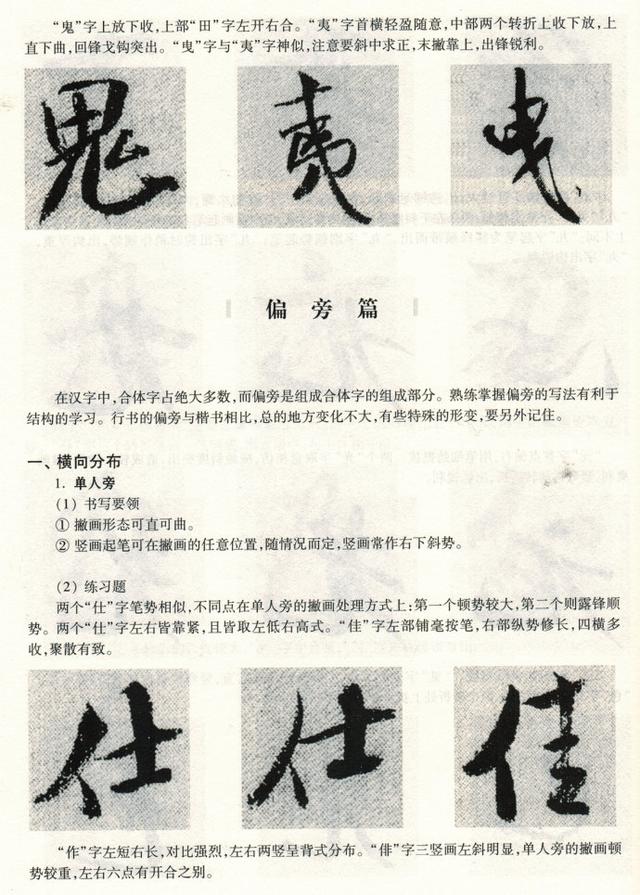 “鬼”字上放下收，上部“田”字左开右合。“夷”字首横轻盈随意，中部两个转折上收下放，上
直下曲，回锋戈钩突出。“曳”字与“夷”字神似，注意要斜中求正，末撇靠上，出锋锐利。
鬼 夷 曳
偏旁篇
在汉字中，合体字占绝大多数，而偏旁是组成合体字的组成部分。熟练掌握偏旁的写法有利于
结构的学习。行书的偏旁与楷书相比，总的地方变化不大，有些特殊的形变，要另外记住。
一、横向分布
1. 单人旁
(1) 书写要领
① 撇画形态可直可曲。
② 竖画起笔可在撇画的任意位置，随情况而定，竖画常作右下斜势。
(2) 练习题
两个“仕”字笔势相似，不同点在单人旁的撇画处理方式上：第一个顿势较大，第二个则露锋顺
势。两个“仕”字左右皆靠紧，且皆取左低右高式。“佳”字左部铺毫按笔，右部纵势修长，四横多
收，聚散有致。
仕 仕 佳
“作”字左短右长，对比强烈，左右两竖呈背式分布。“俳”字三竖画左斜明显，单人旁的撇画顿
势较重，左右六点有开合之别。